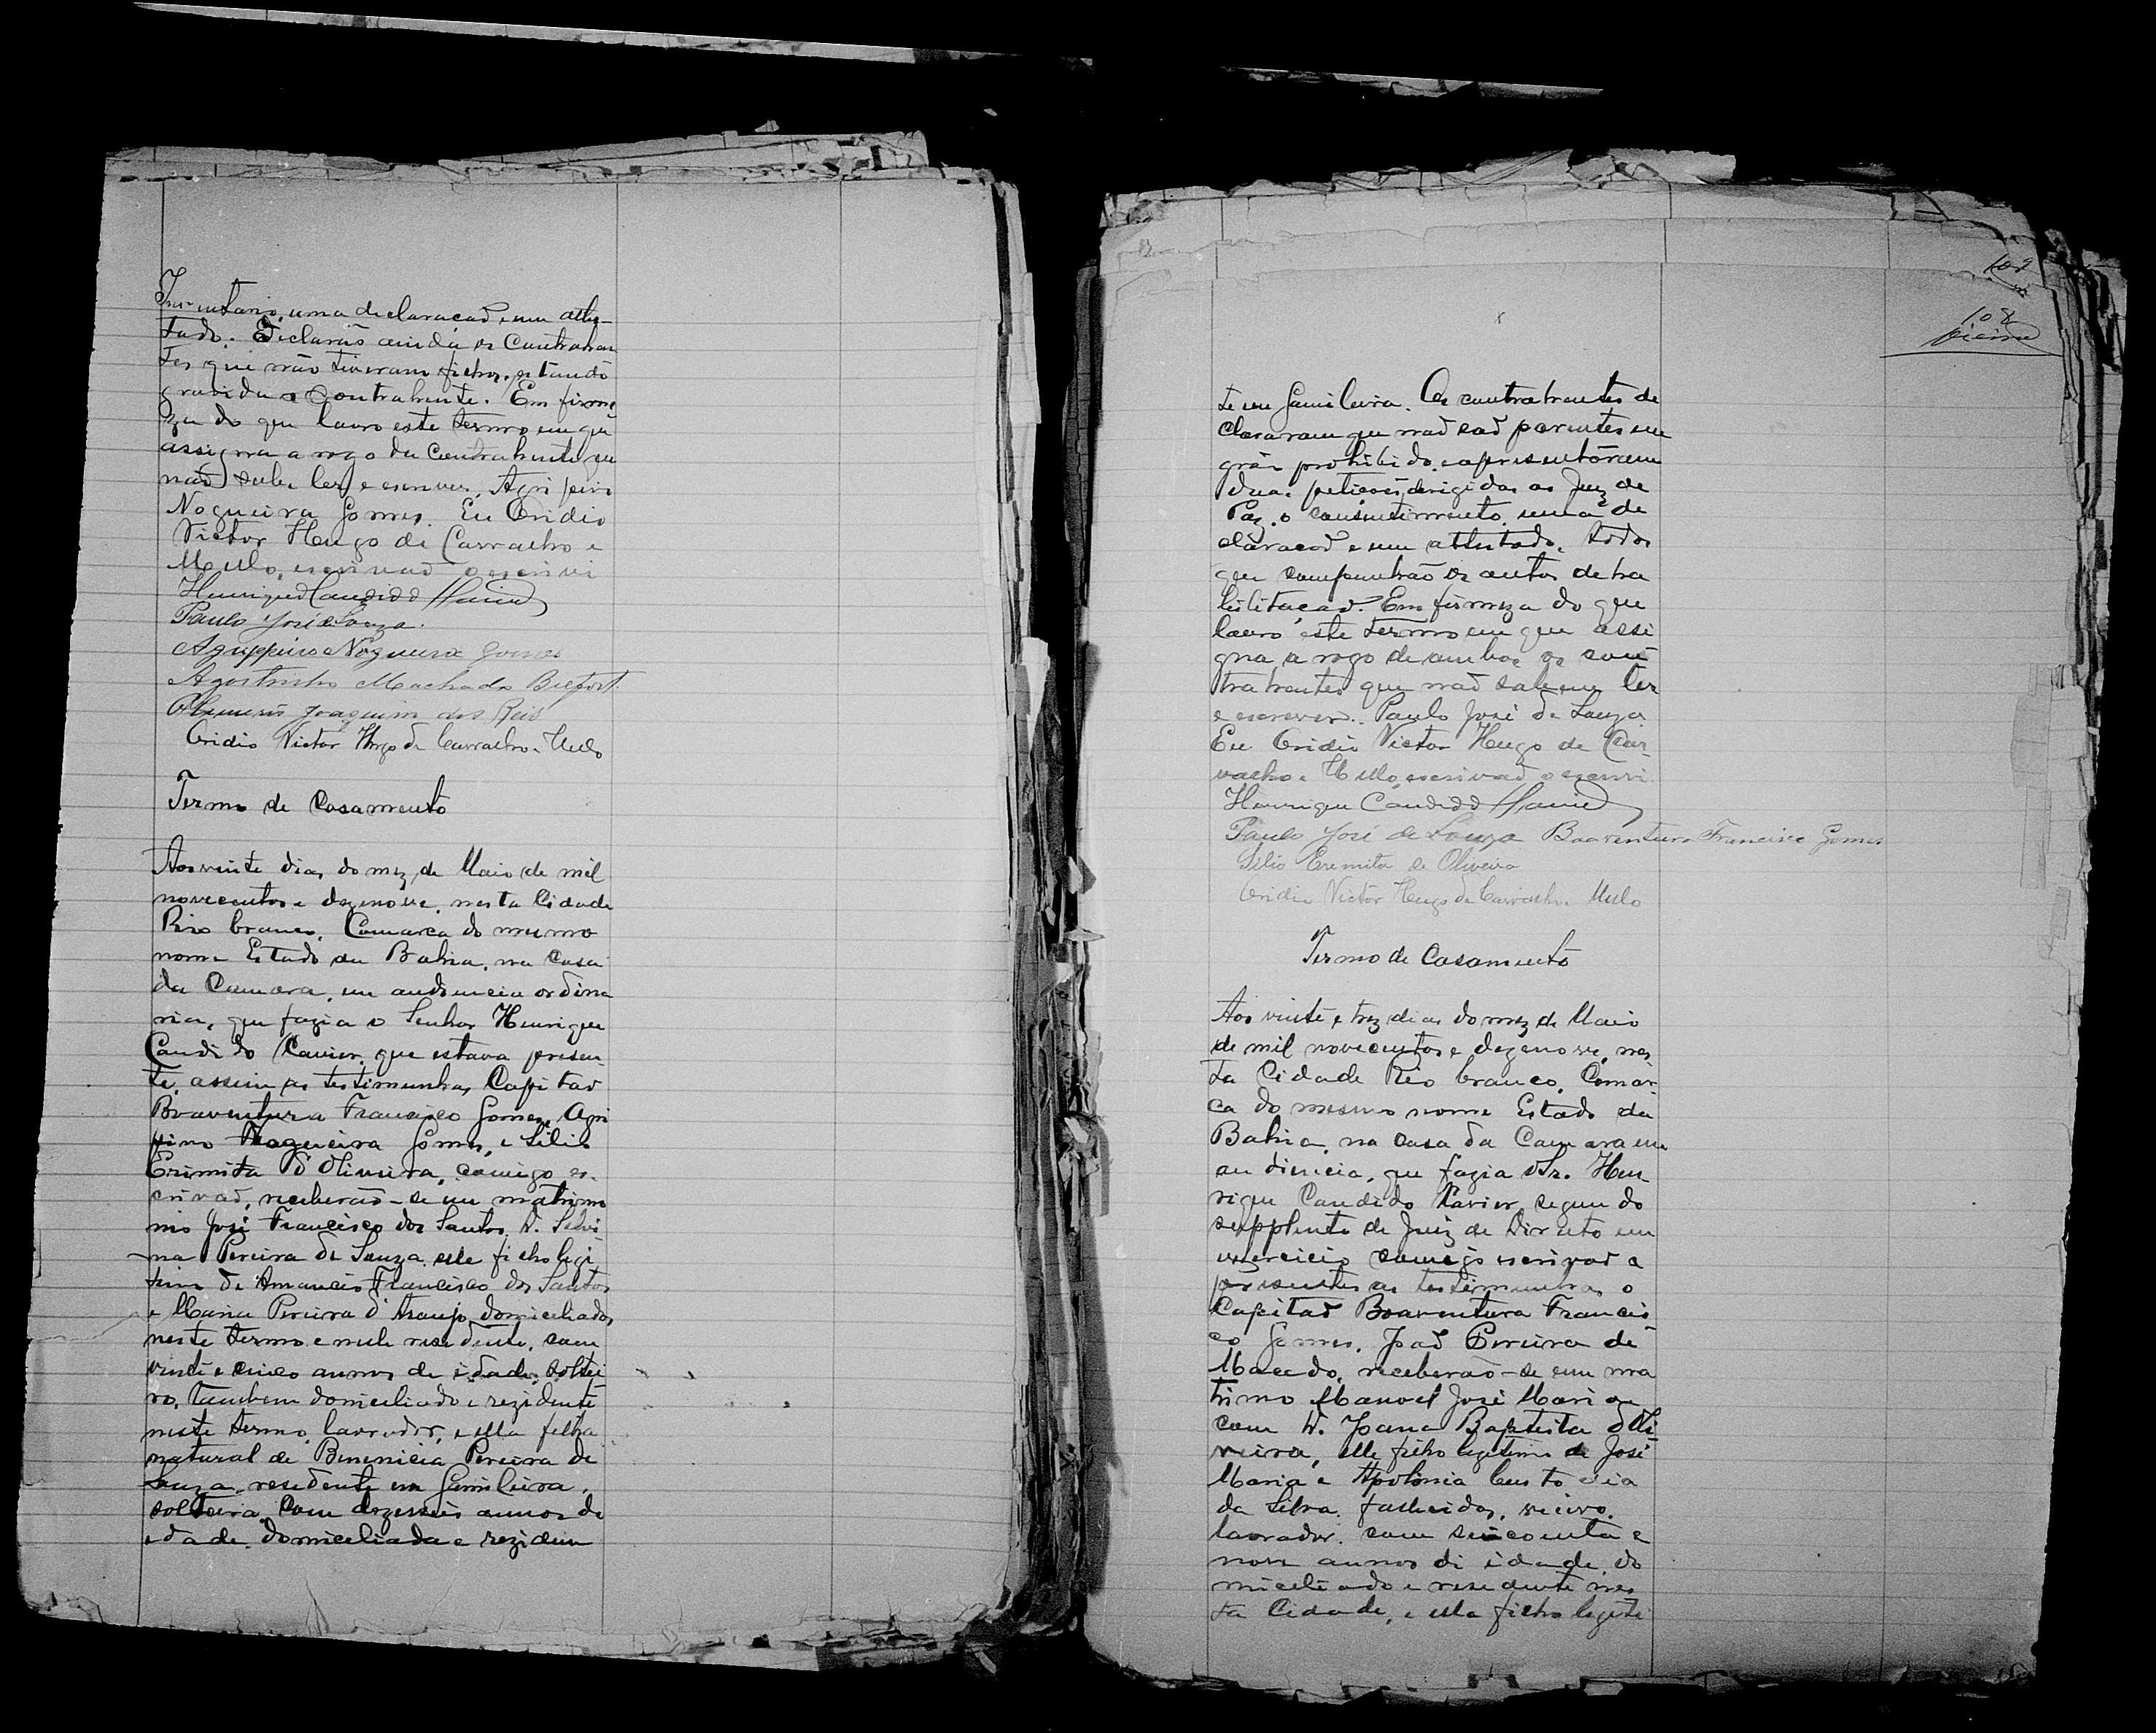 Inventario, uma declaração e um attes-
tado. Declarão ainda os Contrahen
tes que não tiveram filhos, estando
gravida a Contrahente. Em firme
za do que lavro este termo em que
assigna a rogo da Contrahente que
não sabe ler e escrever, Agripino
Nogueira Gomes. Eu Ovidio
Victor Hugo de Carvalho e
Mello, escrivão o escrivi
Henrique Candido Xavier
Paulo José de Souza.
Agrippino Nogueira Gomes
Agostinho Machado
Joaquim dos Reis
Ovidio Victor Hugo de Carvalho e Mello
Termo de Casamento
Aos vinte dias do mez de Maio de mil
novecentos e dezenove, nesta Cidade
Rio branco, Comarca do mesmo
nome Estado da Bahia, na Casa
da Camara, em audiencia ordina
ria, que fazia o Senhor Henrique
Candido Xavier, que estava presen
te, assim as testimunhas Capitão
Boaventura Francisco Gomes, Agri
pino Nogueira Gomes, e Silio
Erimita d'Oliveira, comigo es-
crivão, receberão-se em matrimo
nio José Francisco dos Santos, D. Silvi-
na Pereira de Souza, elle filho legi
timo de Amancio Francisco dos Santos
e Maria Pereira d'Araujo, domiciliados
neste termo e nelle residente, com
vinte e cinco annos de idade, soltei
ro, tambem domiciliado e rezidente
neste termo, lavrador, e ella filha
natural de Benenicia Pereira de
Souza, residente em Gamileira,
solteira, com dezesseis annos de
idade, domiciliada e reziden
102
108
te em Gamileira. Os contrahentes de
clararam que não são parentes em
gráo prohibido, e apresentáram
duas petições dirigidas ao Juiz de
Paz, o consentimento, uma de
claração e um attestado, todos
que compunhão os autos de ha
bilitação. Em firmeza do que
lavro este termo em que assi
gna a rogo de ambos os con
trahentes que não sabem ler
e escrever, Paulo José de Souza.
Eu Ovidio Victor Hugo de Car-
valho e Mello, escrivão o escrivi.
Henrique Candido Xavier
Paulo José de Souza Boaventura Francisco Gomes
Silio Eremita de Oliveira
Ovidio Victor Hugo de Carvalho e Mello
Termo de Casamento
Aos vinte e trez dias do mez de Maio
de mil novecentos e dezenove, nes
ta Cidade Rio branco, Comar
ca do mesmo nome Estado da
Bahia, na casa da Camara em
audiencia, que fazia o Sr. Hen
rique Candido Xavier, segundo
supplente de Juiz de Direito em
exercicio comigo escrivão e
presentes as testimunhas o
Capitão Boaventura Francis
co Gomes, João Pereira de
Macedo, receberão-se em ma
trimo Manoel José Maria
com D. Joana Baptista d'Oli
veira, elle filho legitimo de José
Maria e Apolonia Custodia
da Silva, fallecidos, viuvo,
lavrador, com sincoenta e
nove annos di idade, do
miciliado e residente nes
ta Cidade, e ella filha legiti